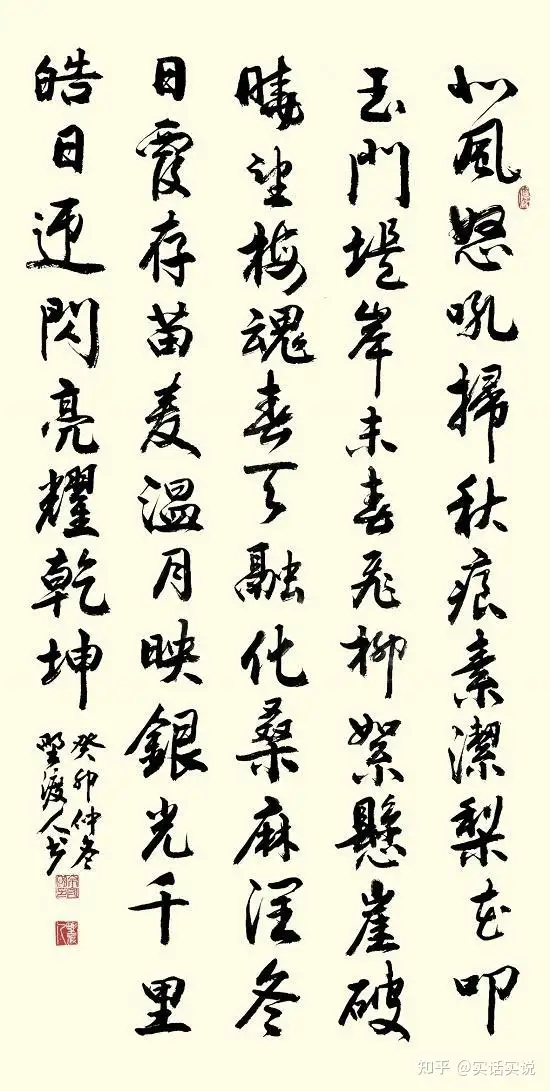 北風怒吼掃秋痕素潔梨花叩
玉門堤岸未春飛柳絮懸崖破
曉望梅魂春天融化桑麻潤冬
日覆存苗麦溫月映銀光千里
皓日迎閃亮耀乾坤
癸卯仲冬
野渡人书
知乎 @实话实说